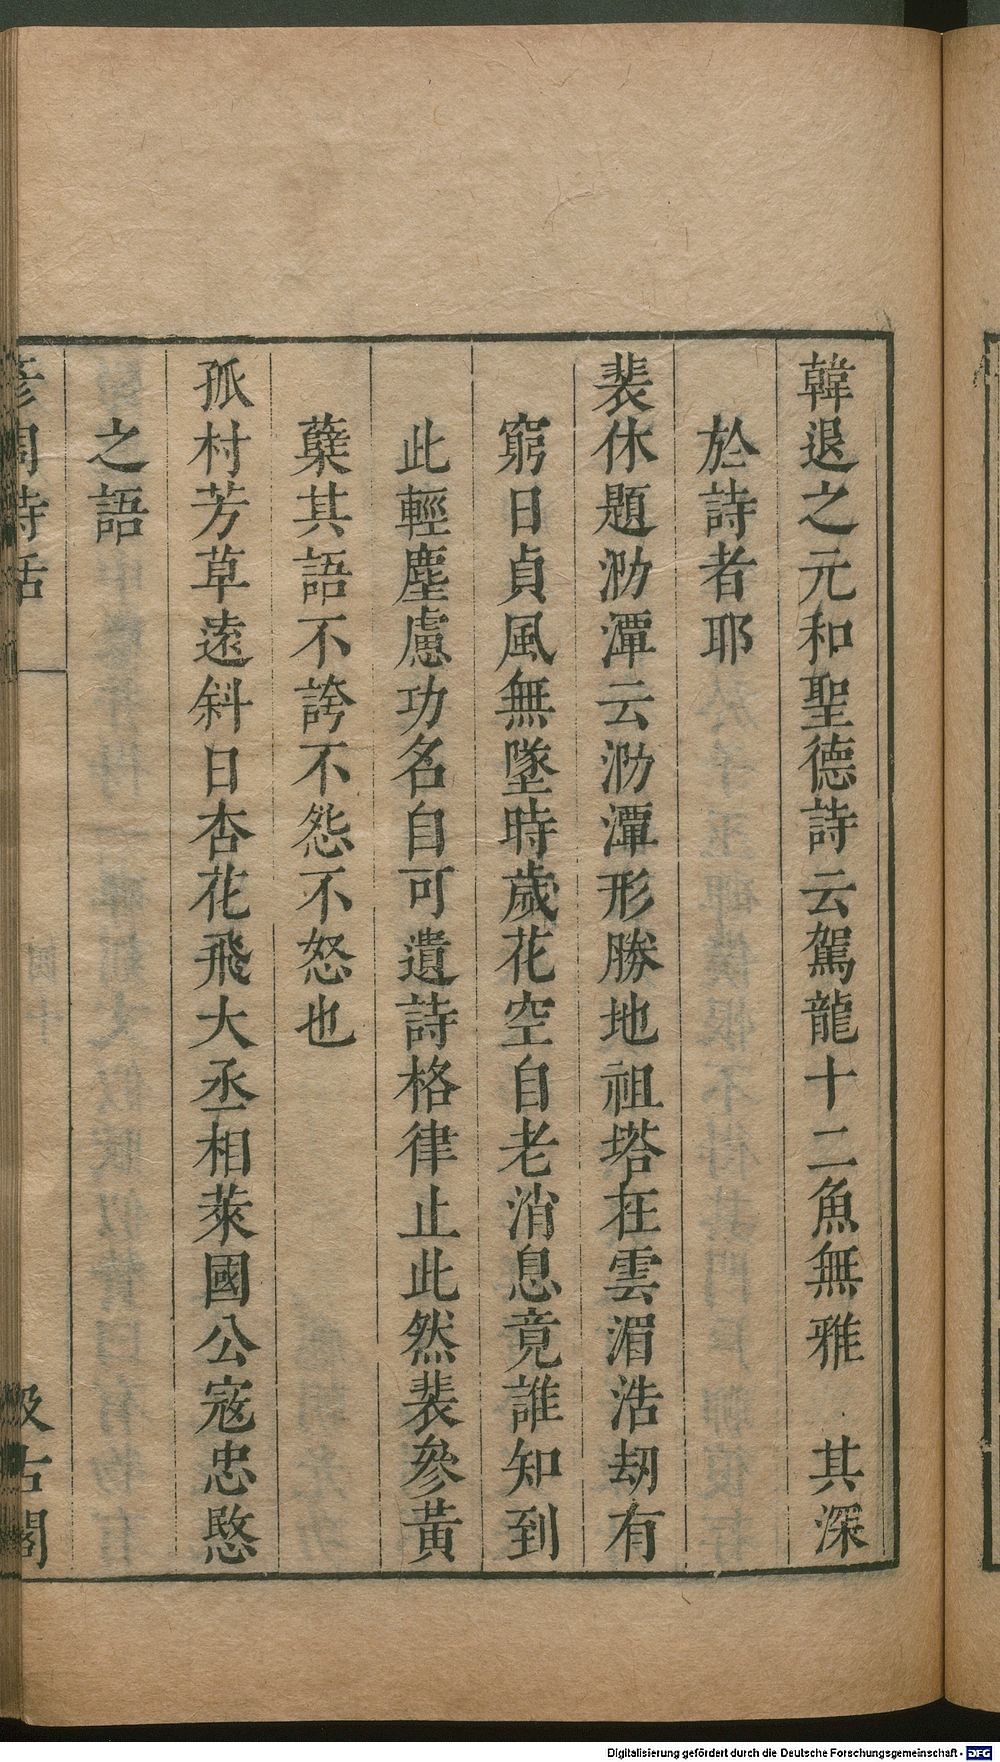 韓退之元和聖德詩云駕龍十二魚無雅 其深
於詩者耶
裴休題泐潭云泐潭形勝地祖塔在雲湄浩劫有
窮日貞風無墜時歲花空自老消息竟誰知到
此輕塵慮功名自可遺詩格律止此然裴參黃
蘗其語不誇不怨不怒也
孤村芳草遠斜日杏花飛大丞相萊國公寇忠愍
之語
彥周詩話
汲古閣
Digitalisierung gefördert durch die Deutsche Forschungsgemeinschaft - DFG